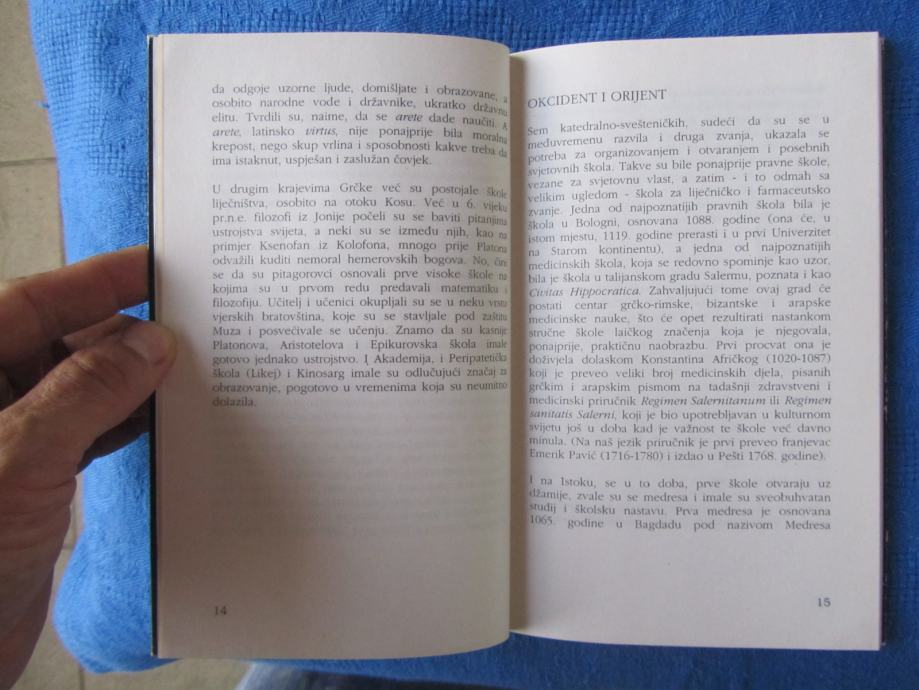 da odgoje uzorne ljude, domišljate i obrazovane, a
osobito narodne vođe i državnike, ukratko državnu
elitu. Tvrdili su, naime, da se arete dade naučiti. A
arete, latinsko virtus, nije ponajprije bila moralna
krepost, nego skup vrlina i sposobnosti kakve treba da
ima istaknut, uspješan i zaslužan čovjek.
U drugim krajevima Grčke već su postojale škole
liječništva, osobito na otoku Kosu. Već u 6. vijeku
pr.n.e. filozofi iz Jonije počeli su se baviti pitanjima
ustrojstva svijeta, a neki su se između njih, kao na
primjer Ksenofan iz Kolofona, mnogo prije Platona
odvažili kuditi nemoral hemerovskih bogova. No, čini
se da su pitagorovci osnovali prve visoke škole na
kojima su u prvom redu predavali matematiku i
filozofiju. Učitelj i učenici okupljali su se u neku vrstu
vjerskih bratovština, koje su se stavljale pod zaštitu
Muza i posvećivale se učenju. Znamo da su kasnije
Platonova, Aristotelova i Epikurovska škola imale
gotovo jednako ustrojstvo. I Akademija, i Peripatetička
škola (Likej) i Kinosarg imale su odlučujući značaj za
obrazovanje, pogotovo u vremenima koja su neumitno
dolazila.
14
OKCIDENT I ORIJENT
Sem katedralno-svešteničkih, sudeći da su se u
međuvremenu razvila i druga zvanja, ukazala se
potreba za organizovanjem i otvaranjem i posebnih
svjetovnih škola. Takve su bile ponajprije pravne škole,
vezane za svjetovnu vlast, a zatim - i to odmah sa
velikim ugledom - škola za liječničko i farmaceutsko
zvanje. Jedna od najpoznatijih pravnih škola bila je
škola u Bologni, osnovana 1088. godine (ona će, u
istom mjestu, 1119. godine prerasti i u prvi Univerzitet
na Starom kontinentu), a jedna od najpoznatijih
medicinskih škola, koja se redovno spominje kao uzor,
bila je škola u talijanskom gradu Salermu, poznata i kao
Civitas Hippocratica. Zahvaljujući tome ovaj grad će
postati centar grčko-rimske, bizantske i arapske
medicinske nauke, što će opet rezultirati nastankom
stručne škole laičkog značenja koja je njegovala,
ponajprije, praktičnu naobrazbu. Prvi procvat ona je
doživjela dolaskom Konstantina Afričkog (1020-1087)
koji je preveo veliki broj medicinskih djela, pisanih
grčkim i arapskim pismom na tadašnji zdravstveni i
medicinski priručnik Regimen Salernitanum ili Regimen
sanitatis Salerni, koji je bio upotrebljavan u kulturnom
svijetu još u doba kad je važnost te škole već davno
minula. (Na naš jezik priručnik je prvi preveo franjevac
Emerik Pavić (1716-1780) i izdao u Pešti 1768. godine).
I na Istoku, se u to doba, prve škole otvaraju uz
džamije, zvale su se medresa i imale su sveobuhvatan
studij i školsku nastavu. Prva medresa je osnovana
1065. godine u Bagdadu pod nazivom Medresa
15